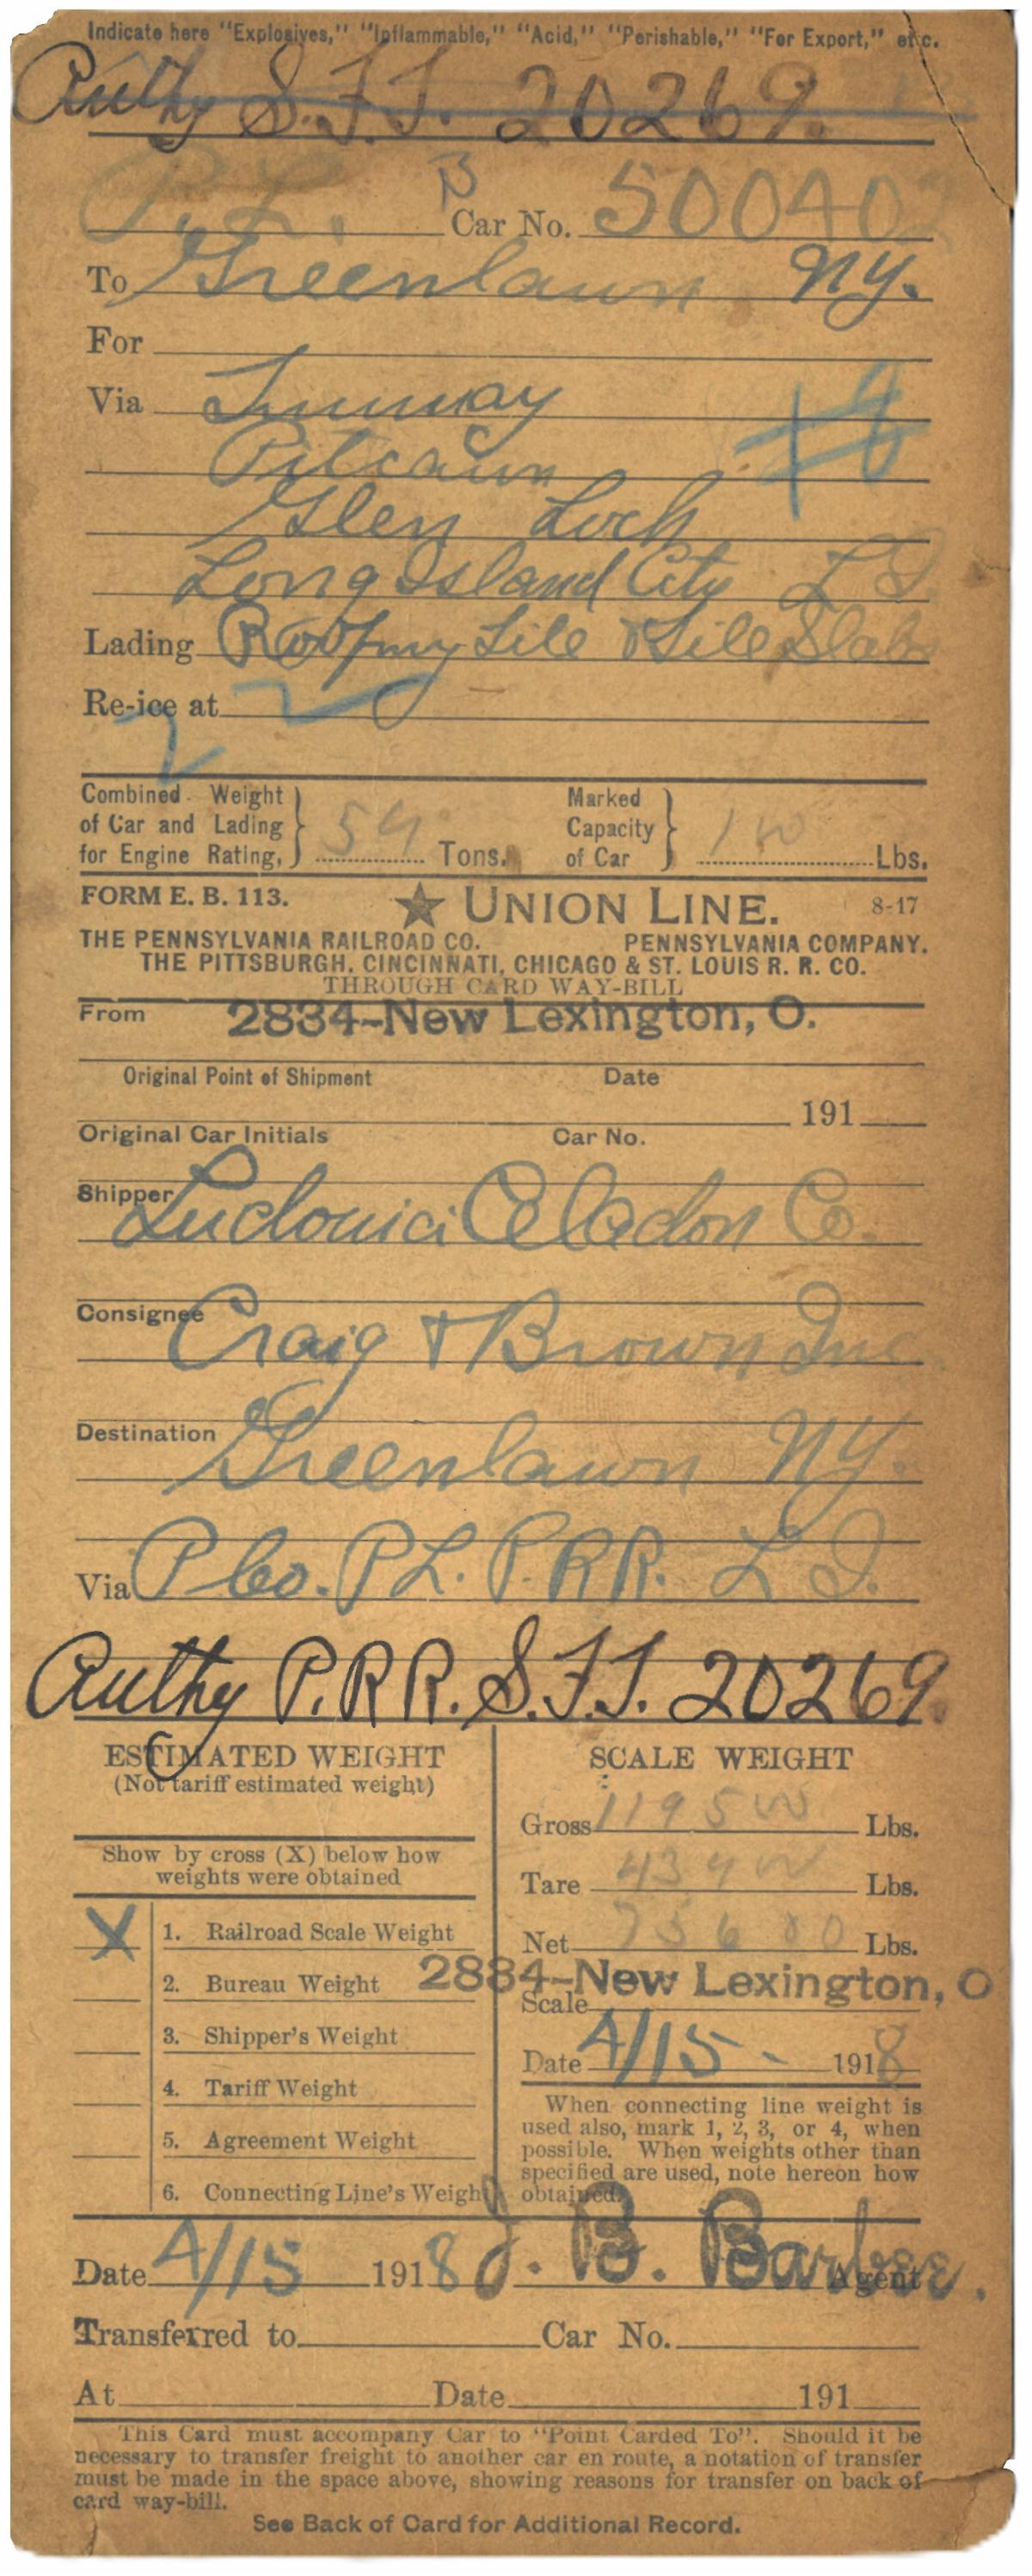 Indicate here "Explosives," "Inflammable," "Acid," "Perishable," "For Export," etc.
Authy S.F.T. 20269.
P. L. B Car No. 500402
To Greenlawn NY.
For
Via
Pitcairn
Glen Loch
Long Island City L I.
Lading Roofing Tile & Tile Slabs
Re-ice at
Combined Weight of Car and Lading for Engine Rating, 59 Tons.
Marked Capacity of Car Lbs.
FORM E. B. 113. ★ UNION LINE. 8-17
THE PENNSYLVANIA RAILROAD CO. PENNSYLVANIA COMPANY.
THE PITTSBURGH, CINCINNATI, CHICAGO & ST. LOUIS R. R. CO.
THROUGH CARD WAY-BILL
From 2834-New Lexington, O.
Original Point of Shipment Date
191
Original Car Initials Car No.
Shipper Ludowici Celadon Co.
Consignee Craig & Brown Inc
Destination Greenlawn NY.
Via P Co. P L. P. RR. L I.
Authy P.R.R. S.F.T. 20269.
ESTIMATED WEIGHT
(Not tariff estimated weight)
Show by cross (X) below how
weights were obtained
X 1. Railroad Scale Weight
2. Bureau Weight
3. Shipper's Weight
4. Tariff Weight
5. Agreement Weight
6. Connecting Line's Weight
SCALE WEIGHT
Gross 119500 Lbs.
Tare 43900 Lbs.
Net 75600 Lbs.
2834-New Lexington, O
Scale
Date 4/15 - 1918
When connecting line weight is
used also, mark 1, 2, 3, or 4, when
possible. When weights other than
specified are used, note hereon how
obtained.
Date 4/15 1918 J. B. Barbee. Agent
Transferred to Car No.
At Date 191
This Card must accompany Car to "Point Carded To". Should it be
necessary to transfer freight to another car en route, a notation of transfer
must be made in the space above, showing reasons for transfer on back of
card way-bill.
See Back of Card for Additional Record.